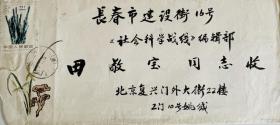 長春市建設街16号
《社会科学战线》编辑部
田敬宝同志收
北京复兴门外大街22楼
2门10号姚